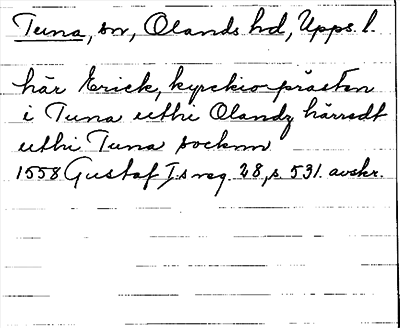 Tuna, sn, Olands hd, Upps. l.
här Erick, kyrckioprästen
i Tuna uthi Olandz härredt
uthi Tuna socknn
1558 Gustaf I:s reg. 28, s. 531. avskr.